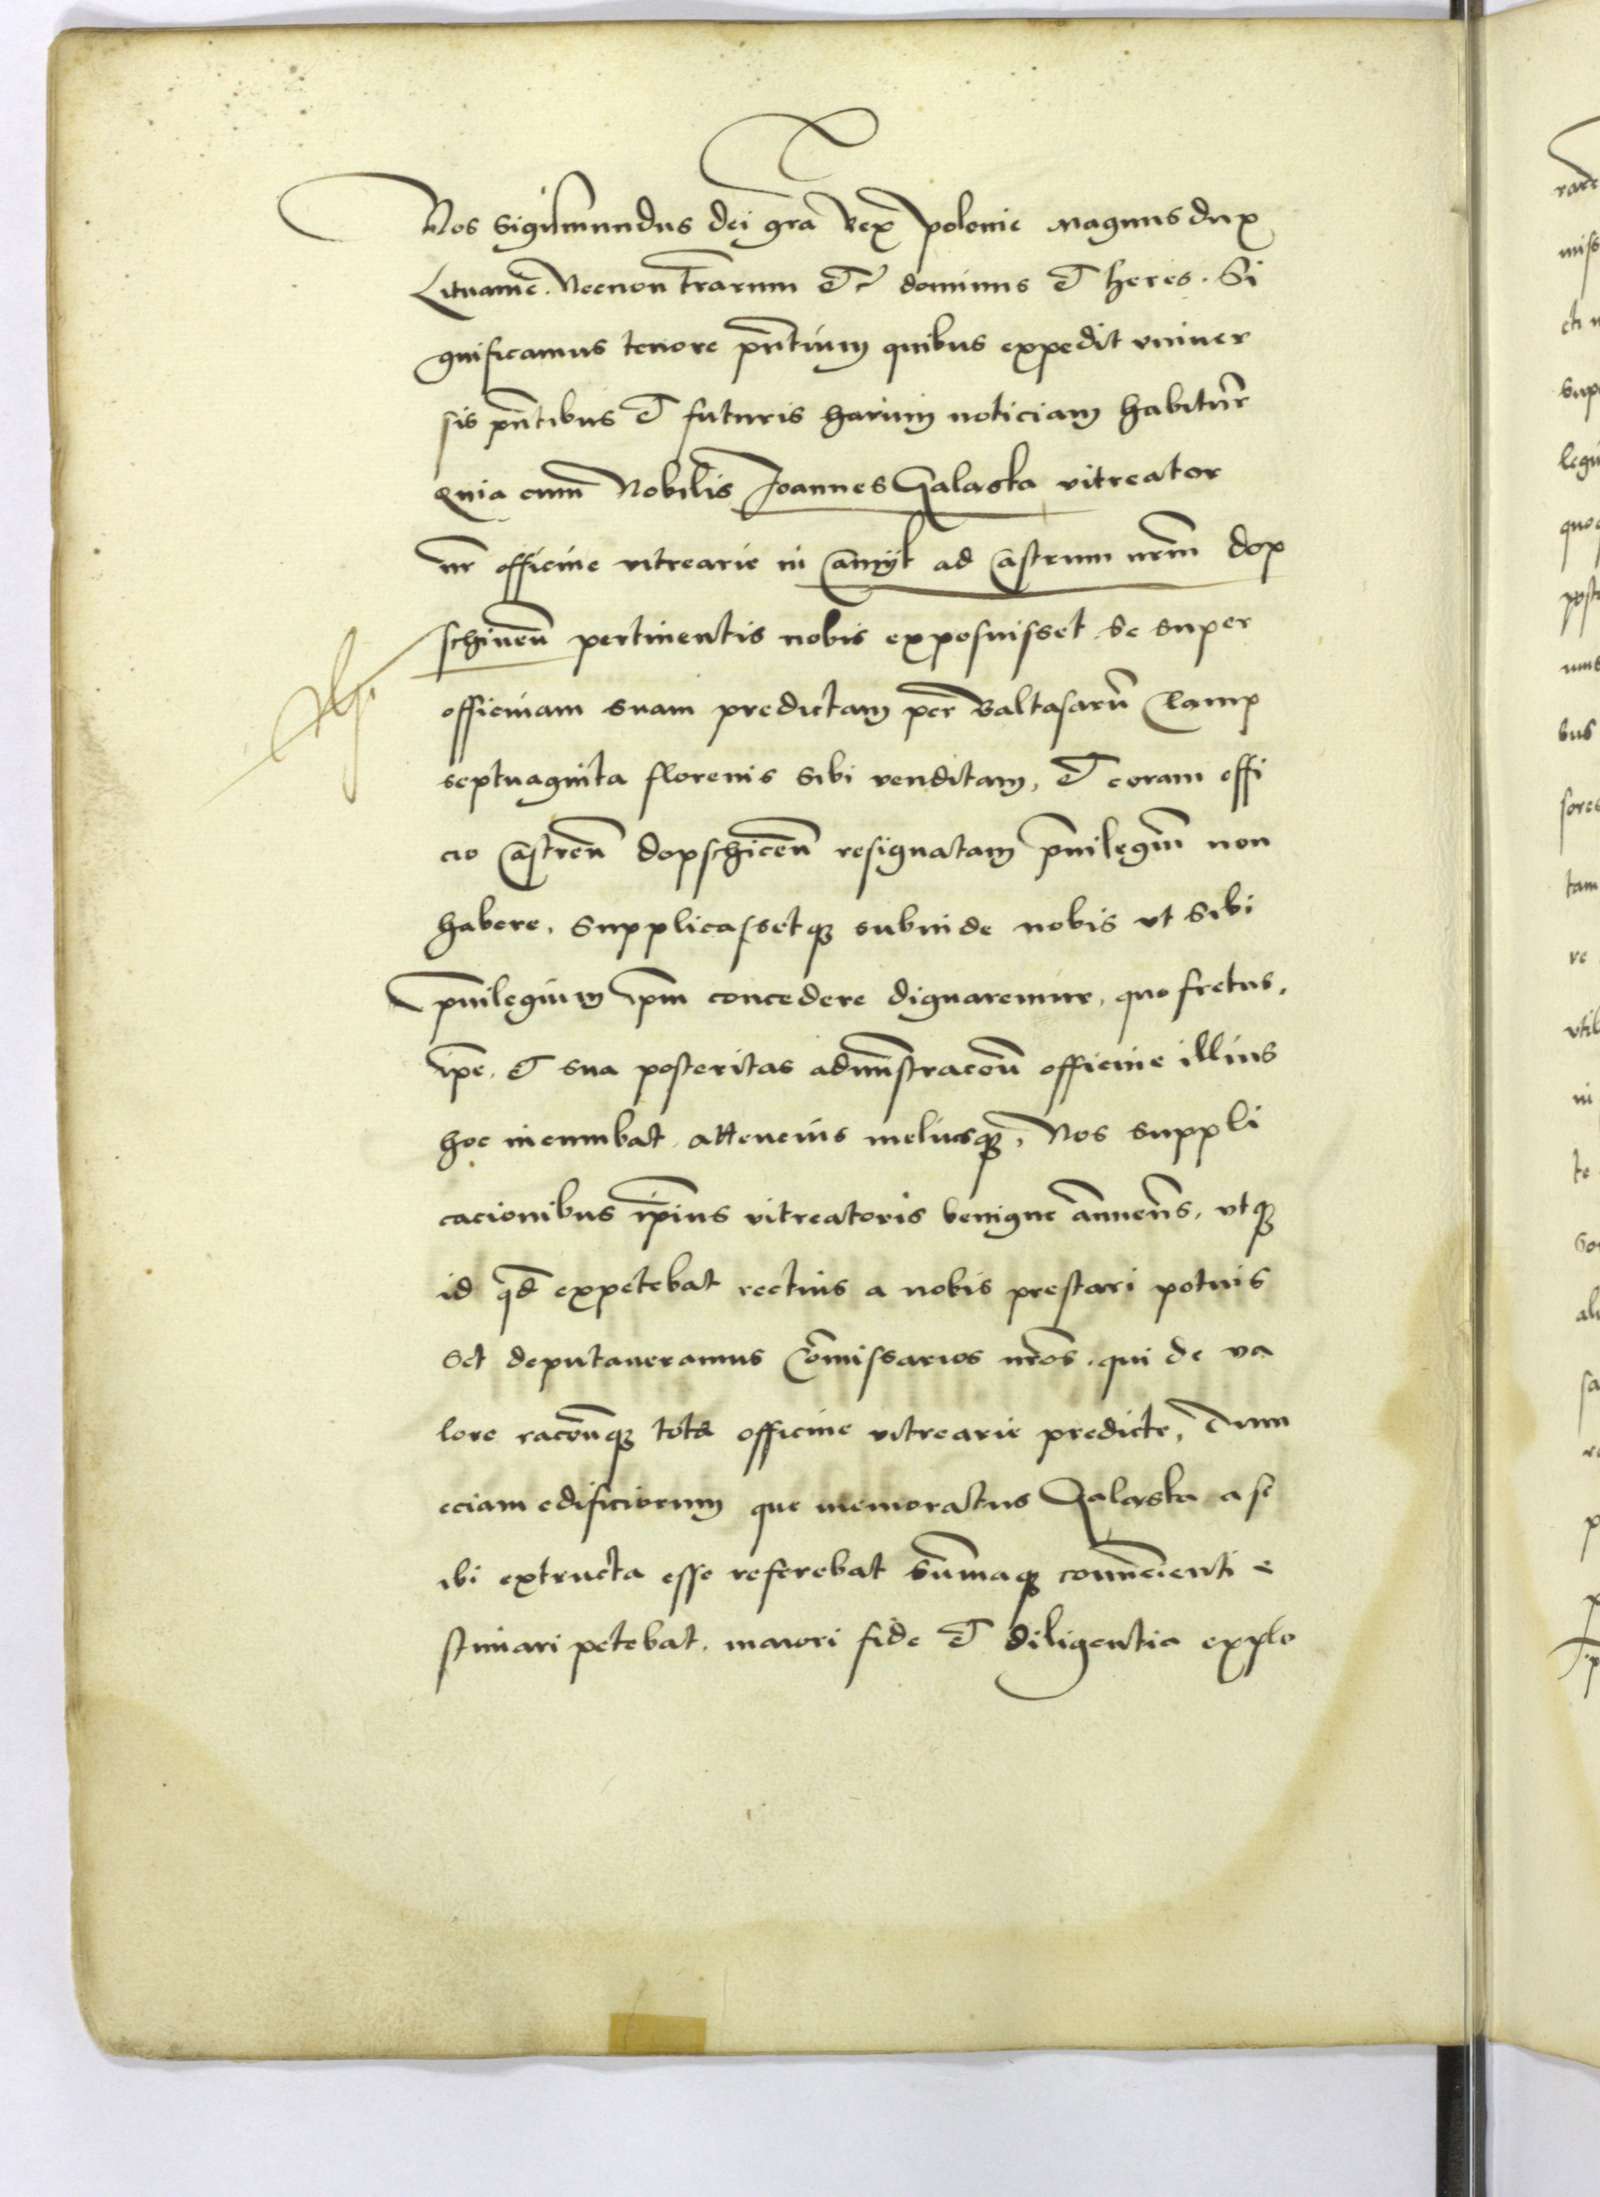 Nos Sigismundus dei gra Rex polonie Magnus dux
Lituanie. Necnon trarum et c dominus et heres. Si
gnificamus tenore pntium quibus expedit vniuer
sis pntibus et futuris harum noticiam habitur
Quia cum Nobilis Joannes Galaska vitreator
nr officine vitrearie in Camyk ad Castrum nrm dop
schinen pertinentis nobis exposuisset. Se super
officinam suam predictam per Baltasarum Clamp
septuaginta florenis sibi venditam, et coram offi
cio Castren dopschicen resignatam priuilegium non
habere, Supplicassetq subinde nobis vt sibi
priuilegium ipm concedere dignaremur, quo fretus,
ipe. et sua posteritas administraconi officine illius
hoc incumbat attencius meliusq, Nos suppli
cacionibus ipius vitreatoris benigne annuens, vtq
id qd expetebat rectius a nobis prestari potuis
set deputaueramus Comissarios nros. qui de va
lore raconeq tota officine vitrearie predicte, Tum
eciam edificiorum que memoratus Galaska a se
ibi extructa esse referebat summaq conuenienti e
stimari petebat. maiori fide et diligentia explo